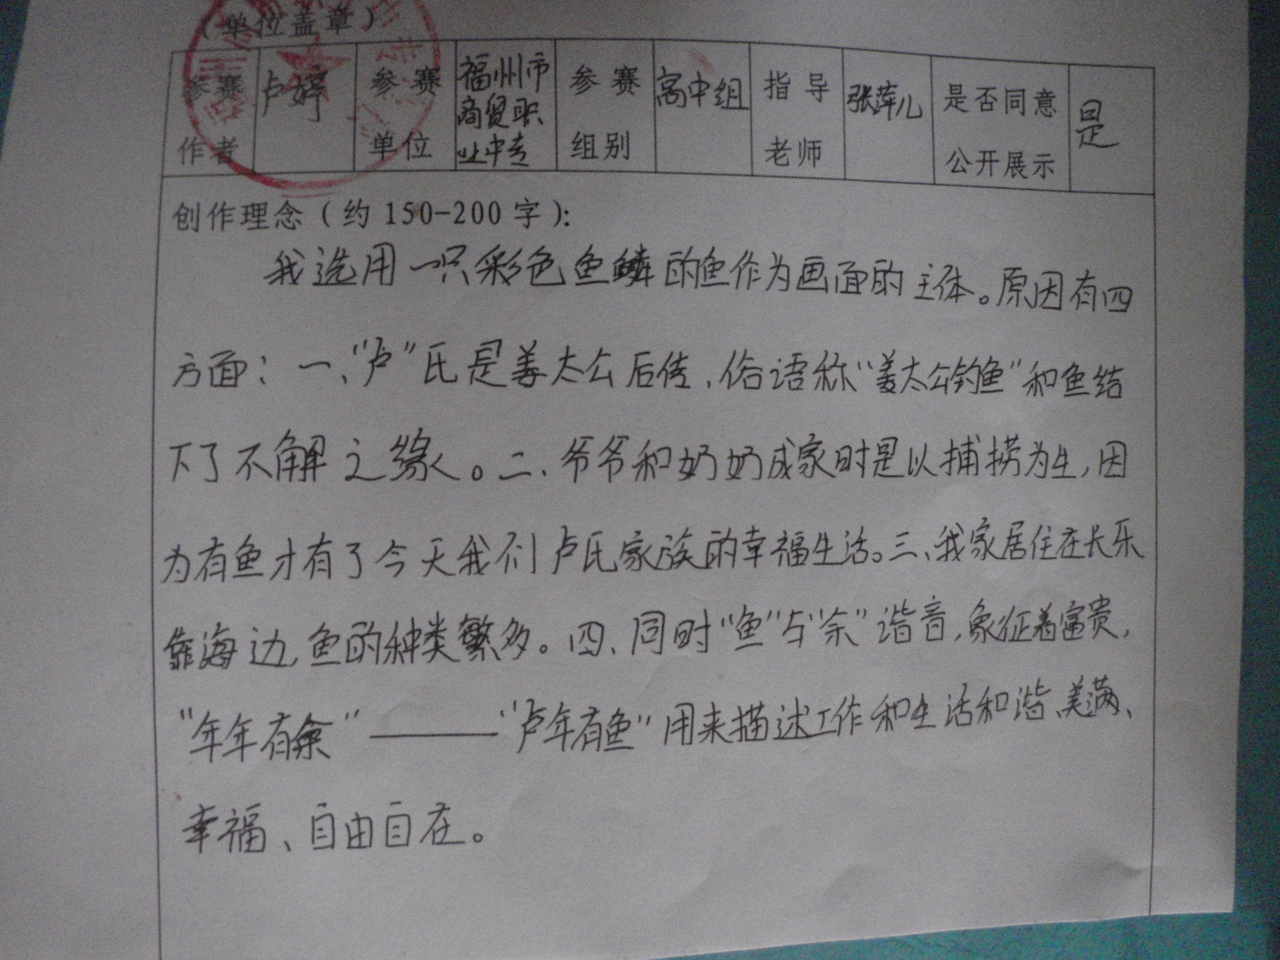 （单位盖章）
参赛作者 卢婷 参赛单位 福州市商贸职业中专 参赛组别 高中组 指导老师 张萍儿 是否同意公开展示 是
创作理念（约150-200字）：
我选用一只彩色鱼鳞的鱼作为画面的主体。原因有四
方面：一、“卢”氏是姜太公后传，俗语称“姜太公钓鱼”和鱼结
下了不解之缘。二、爷爷和奶奶成家时是以捕捞为生，因
为有鱼才有了今天我们卢氏家族的幸福生活。三、我家居住在长乐
靠海边，鱼的种类繁多。四、同时“鱼”与“余”谐音，象征着富贵，
“年年有余”———“卢年有鱼”用来描述工作和生活和谐、美满、
幸福、自由自在。